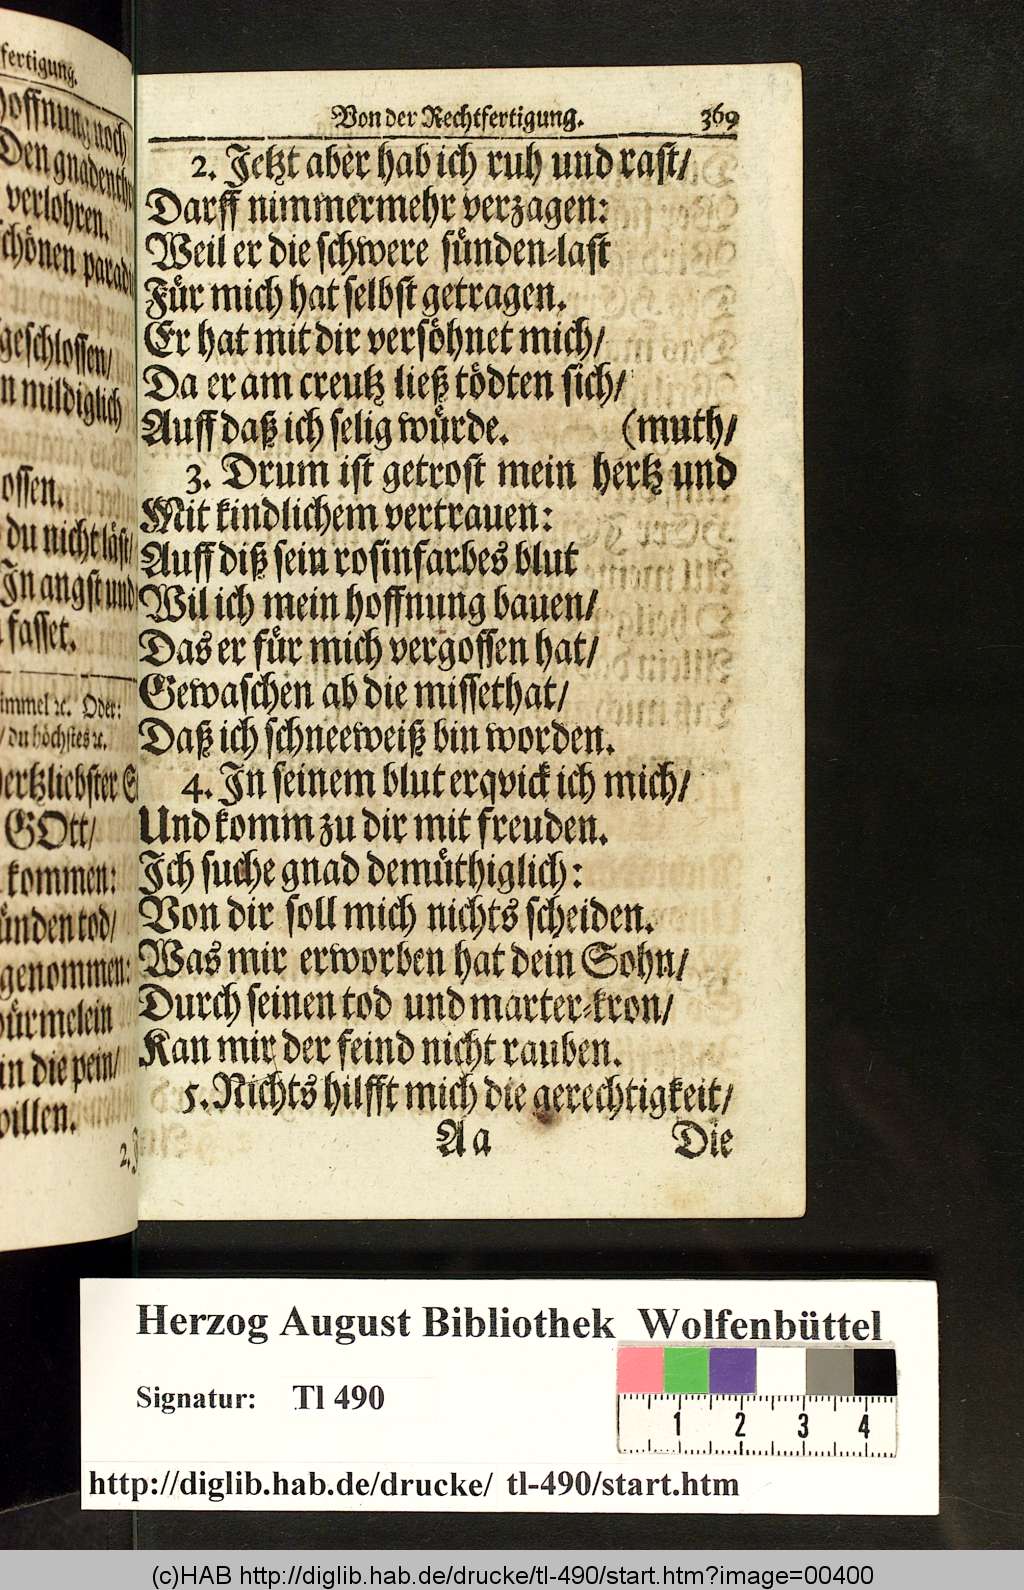 fertigung.
Hoffnung noch
Den gnadenthr
verlohren.
schönen parad
geschlossen/
n mildiglich
ossen.
du nicht läst/
In angst und
fasset.
immel ꝛc. Oder:
/ du höchstes ꝛc.
ertzliebster
GOtt/
kommen:
ünden tod/
genommen:
würmelein
in die pein/
willen.
2.
Von der Rechtfertigung. 369
2. Jetzt aber hab ich ruh und rast/
Darff nimmermehr verzagen:
Weil er die schwere sünden-last
Für mich hat selbst getragen.
Er hat mit dir versöhnet mich/
Da er am creutz ließ tödten sich/
Auff daß ich selig würde. (muth/
3. Drum ist getrost mein hertz und
Mit kindlichem vertrauen:
Auff diß sein rosinfarbes blut
Wil ich mein hoffnung bauen/
Das er für mich vergossen hat/
Gewaschen ab die missethat/
Daß ich schneeweiß bin worden.
4. In seinem blut erqvick ich mich/
Und komm zu dir mit freuden.
Ich suche gnad demüthiglich:
Von dir soll mich nichts scheiden.
Was mir erworben hat dein Sohn/
Durch seinen tod und marter-kron/
Kan mir der feind nicht rauben.
5. Nichts hilfft mich die gerechtigkeit/
Aa Die
Herzog August Bibliothek Wolfenbüttel
Signatur: Tl 490
1 2 3 4
http://diglib.hab.de/drucke/ tl-490/start.htm
(c)HAB http://diglib.hab.de/drucke/tl-490/start.htm?image=00400